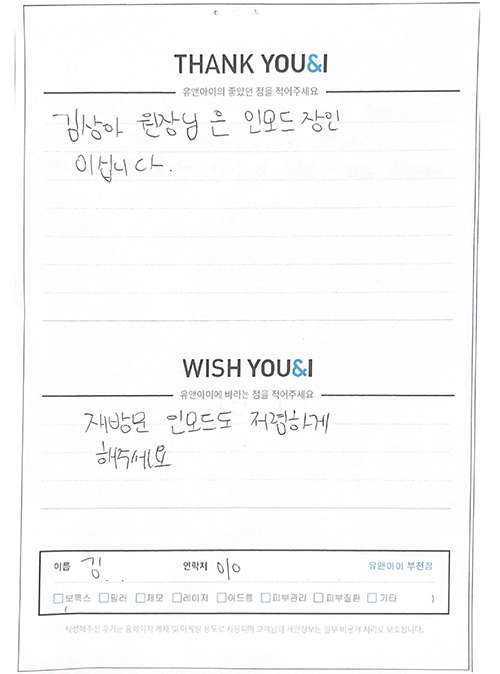 THANK YOU&I
유앤아이의 좋았던 점을 적어주세요
김상아 원장님은 인모드 장인
이십니다.
WISH YOU&I
유앤아이에 바라는 점을 적어주세요
재방문 인모드도 저렴하게
해주세요
이름 김 연락처 010 유앤아이 부천점
보톡스 필러 제모 레이저 여드름 피부관리 피부질환 기타 )
작성해주신 후기는 홈페이지 게재 및 마케팅 용도로 사용되며 고객님의 개인정보는 일부 비공개 처리로 보호됩니다.